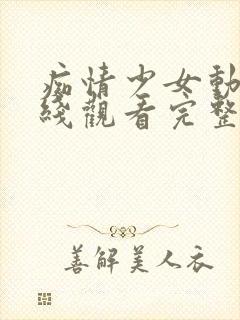 痴情少女動
綫觀看完整
善解美人衣